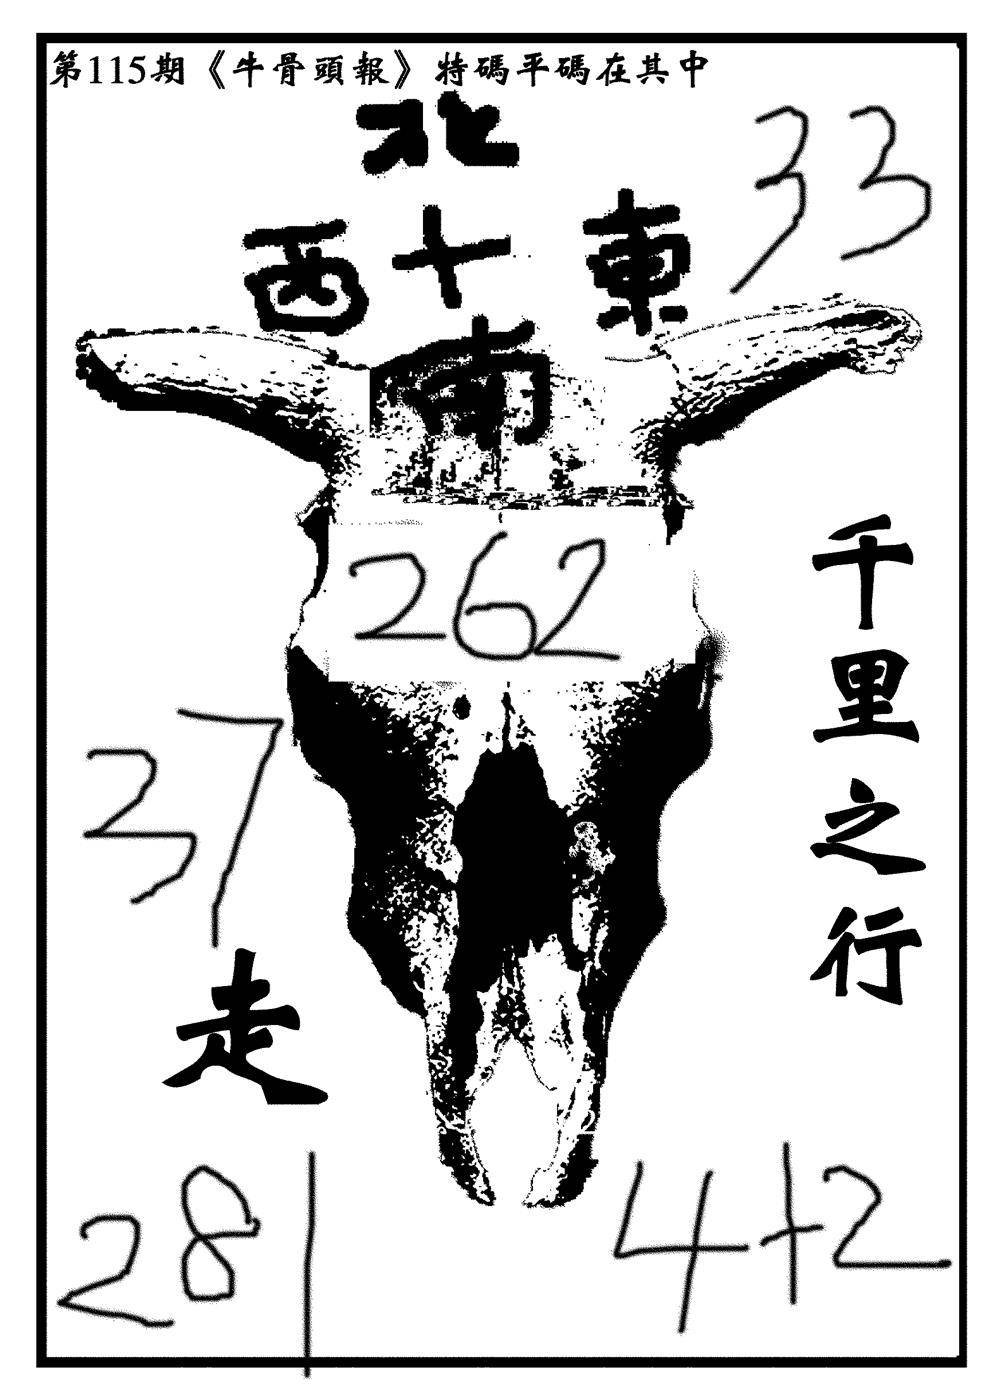 第115期《牛骨頭報》特碼平碼在其中
北
33
西十東
南
262
千里之行
37
走
281
4+2